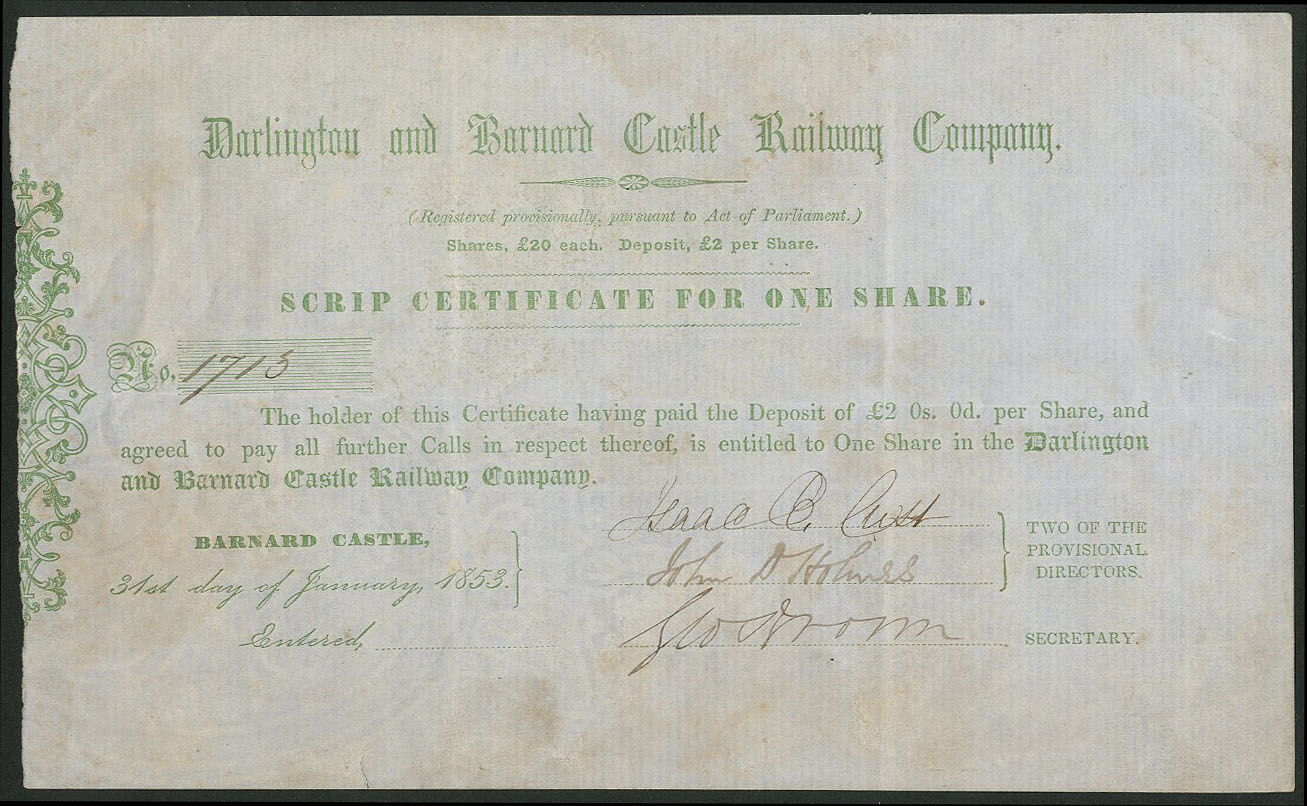 Darlington and Barnard Castle Railway Company.
(Registered provisionally, pursuant to Act of Parliament.)
Shares, £20 each. Deposit, £2 per Share.
SCRIP CERTIFICATE FOR ONE SHARE.
No. 1715
The holder of this Certificate having paid the Deposit of £2 0s. 0d. per Share, and
agreed to pay all further Calls in respect thereof, is entitled to One Share in the Darlington
and Barnard Castle Railway Company.
BARNARD CASTLE,
31st day of January, 1853.
Entered,
Isaac
John D Holmes
TWO OF THE
PROVISIONAL
DIRECTORS.
Geo Brown
SECRETARY.